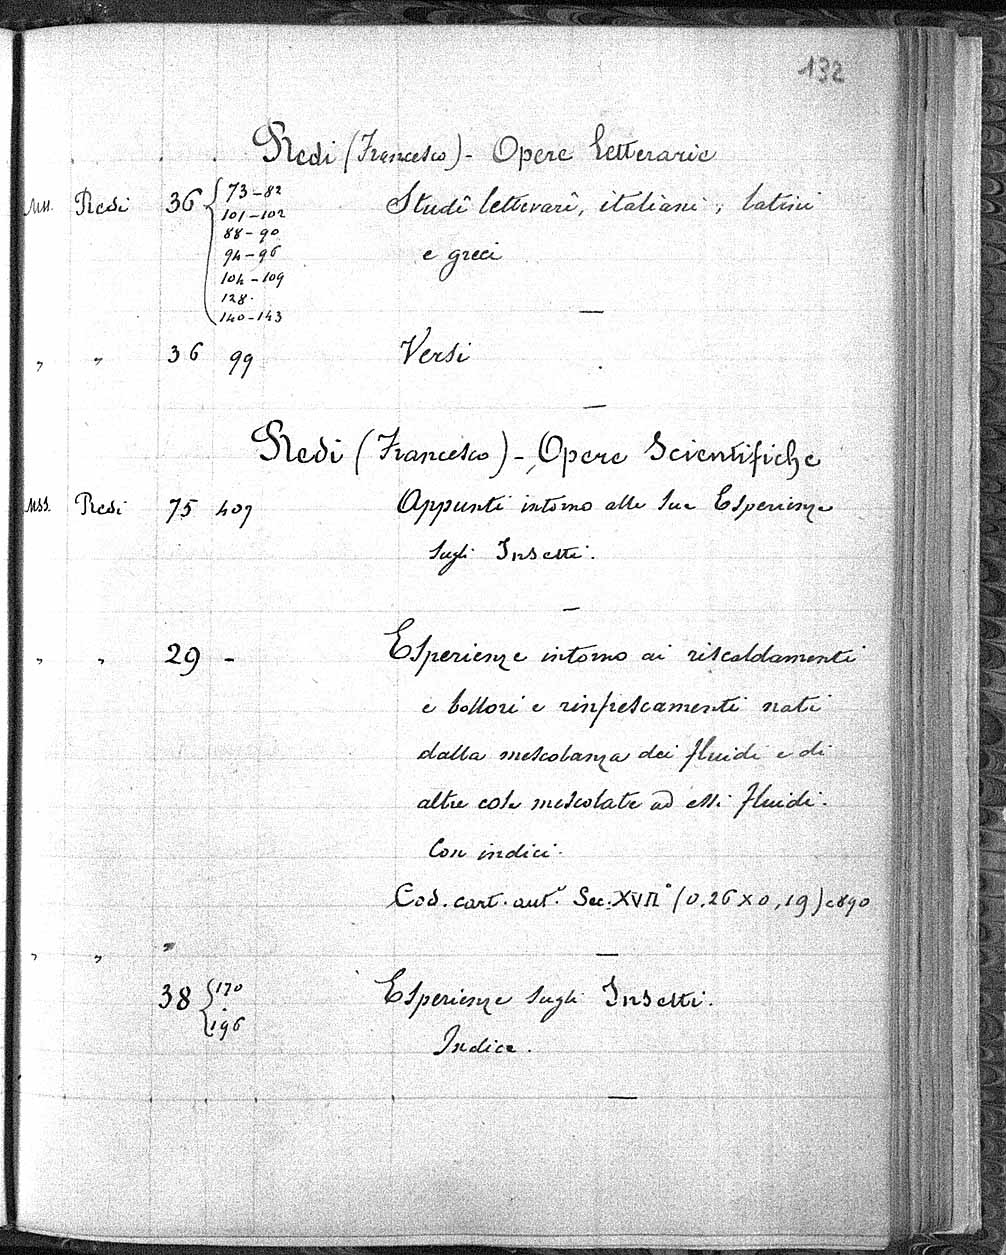 132
Redi (Francesco) - Opere letterarie
Mss. Redi 36 { 73-82 Studî letterarî, italiani, latini
101-102
88-90
94-96 e greci
104-109
128.
140-143
" " 36 99 Versi
Redi (Francesco) - Opere Scientifiche
Mss. Redi 75 409 Appunti intorno alle sue Esperienze
sugli Insetti.
" " 29 - Esperienze intorno ai riscaldamenti
e bollori e rinfrescamenti nati
dalla mescolanza dei fluidi e di
altre cose mescolate ad essi fluidi.
Con indici.
Cod. cart. aut.º Sec. XVIIº (0,26 X 0,19) c 890
" " "
38 { 170 Esperienze sugli Insetti.
196
Indice.